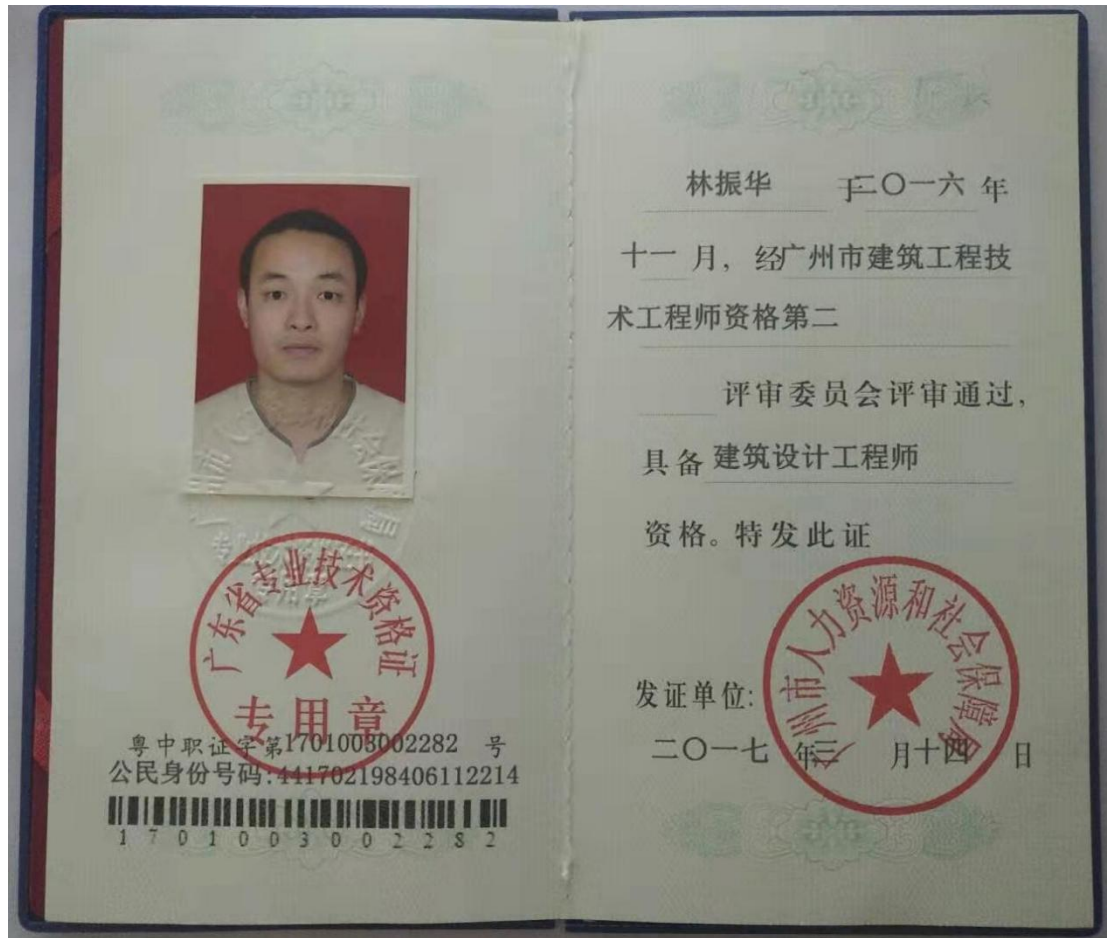 广东省专业技术资格证
专用章
粤中职证字第1701003002282 号
公民身份号码:441702198406112214
1701003002282
林振华 于二〇一六 年
十一 月, 经广州市建筑工程技
术工程师资格第二
评审委员会评审通过,
具备 建筑设计工程师
资格。特发此证
广州市人力资源和社会保障局
发证单位:
二〇一七 年三 月十四 日